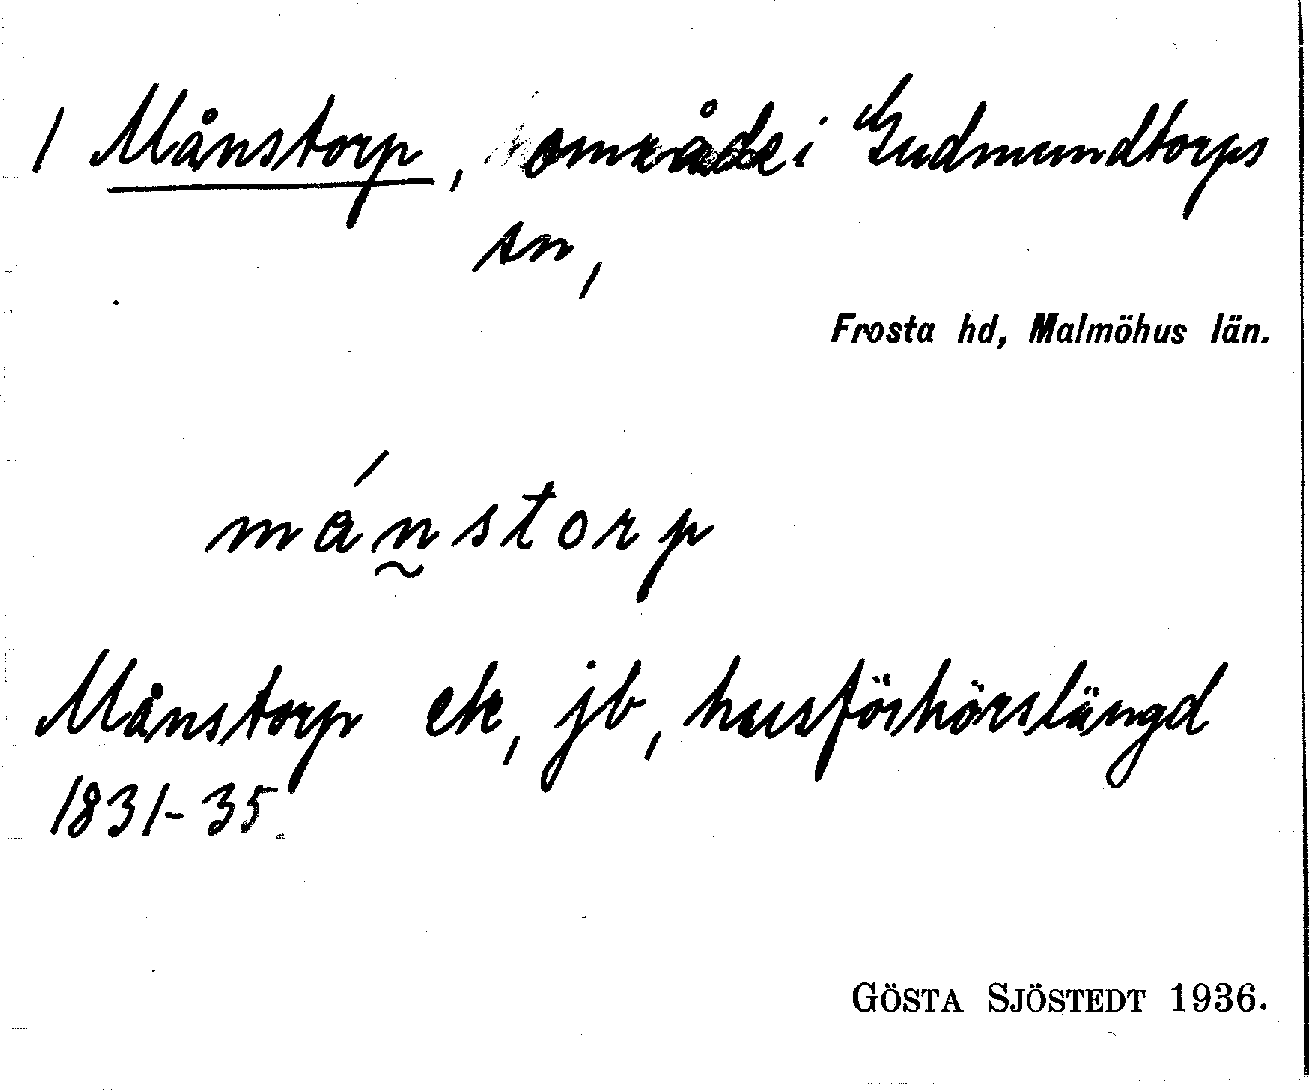 1 Månstorp, område i Gudmundtorps
sn,
Frosta hd, Malmöhus län.
má̰nstorp
Månstorp ek, jb, husförhörslängd
1831-35
GÖSTA SJÖSTEDT 1936.